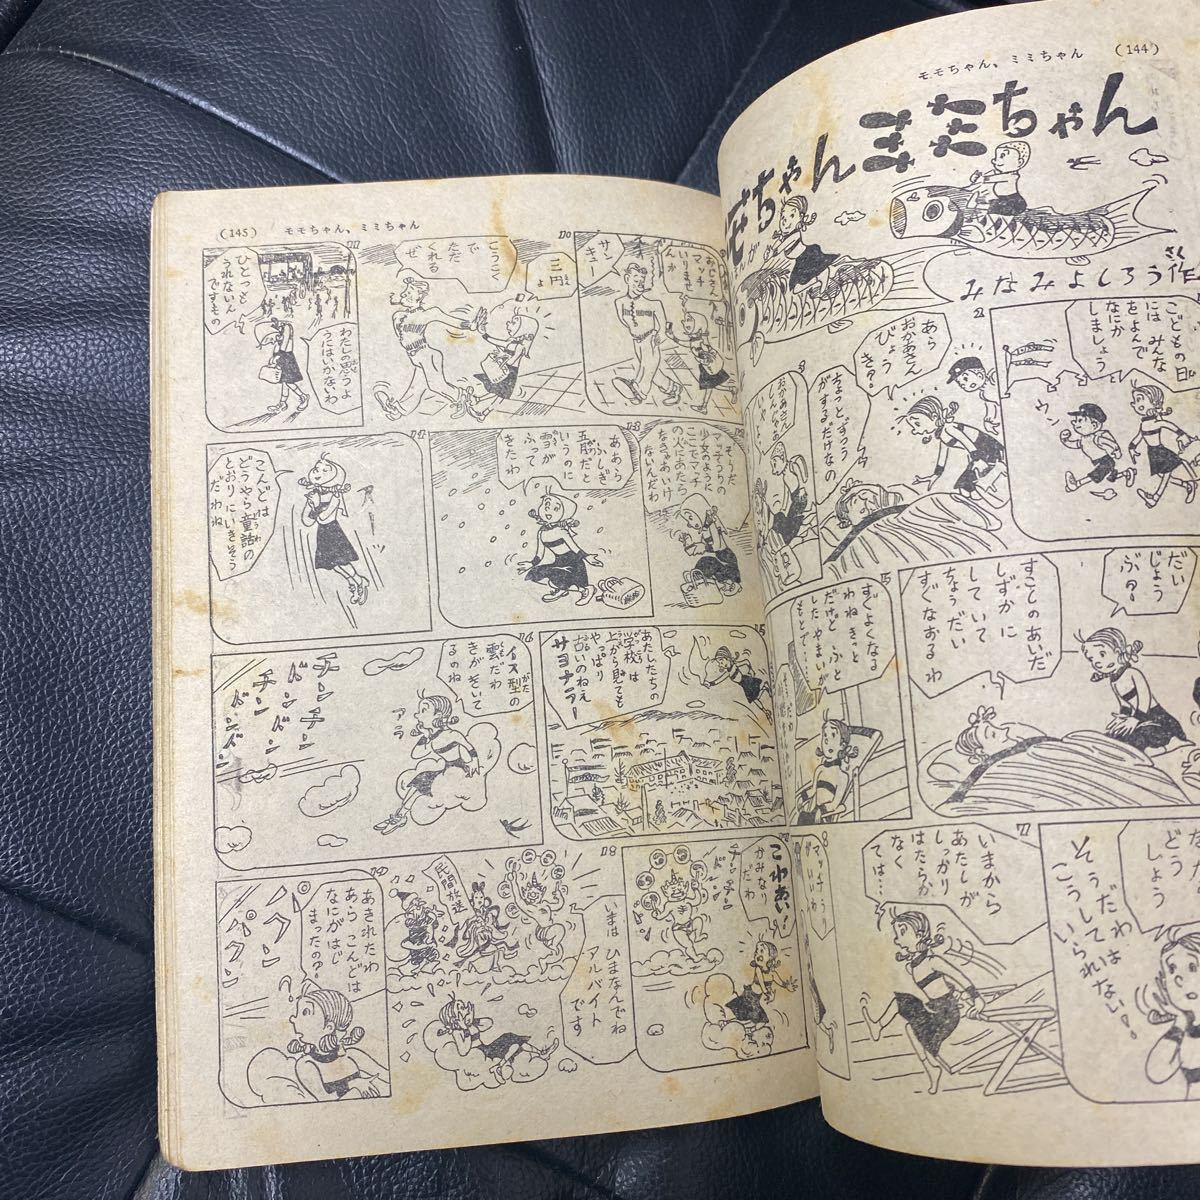 モモちゃん、ミミちゃん (144)
モモちゃん ミミちゃん
みなみよしろう作
さく
こどもの日
には みんな
をよんで
なにか
しましょう
ウン
2
あら
おかあさん
びょう
き?
ちょっとずつう
がするだけなの
3
おかあさん
だい
じょう
ぶ?
すこしのあいだ
しずかに
していて
ちょうだい
すぐなおるわ
5
すぐよくなる
わねきっと
だけど ふと
した やまいが
もとで…
どう
しょう
そうだわ
そうして
こうしちゃ
いられない!
7
いまから
あたしが
しっかり
はたらか
なく
ては…
8
マッチ
(145) モモちゃん、ミミちゃん
おじさん
マッチ
いりませ
んか
サン
キュー
10
三円
よ
こうこく
で
ただ
くれる
ぜ
11
ひとっつも
うれないん
ですもの
わたしの思うよ
うにはいかないわ
そうだ
マッチうりの
少女のように
ここでマッチ
の火にあたら
なきゃあいけ
ないんだわ
13
ああら
ふしぎ
五月だと
いうのに
雪が
ふって
きたわ
14
こんどは
どうやら童話の
とおりにいきそう
だわね
15
あたしたちの
学校は
上から見ても
やっぱり
古いのねえ
サヨナラー
16
イス型の
雲だわ
きがきいて
るのね
アラ
チン
ドン
チン
ドン
チン
ドン
こわあい!
かみなり
だわ
18
いまは ひまなんでね
アルバイト
です
民間放送
19
あきれたわ
あら こんどは
なにがはじ
まったの?
パクン
パクン